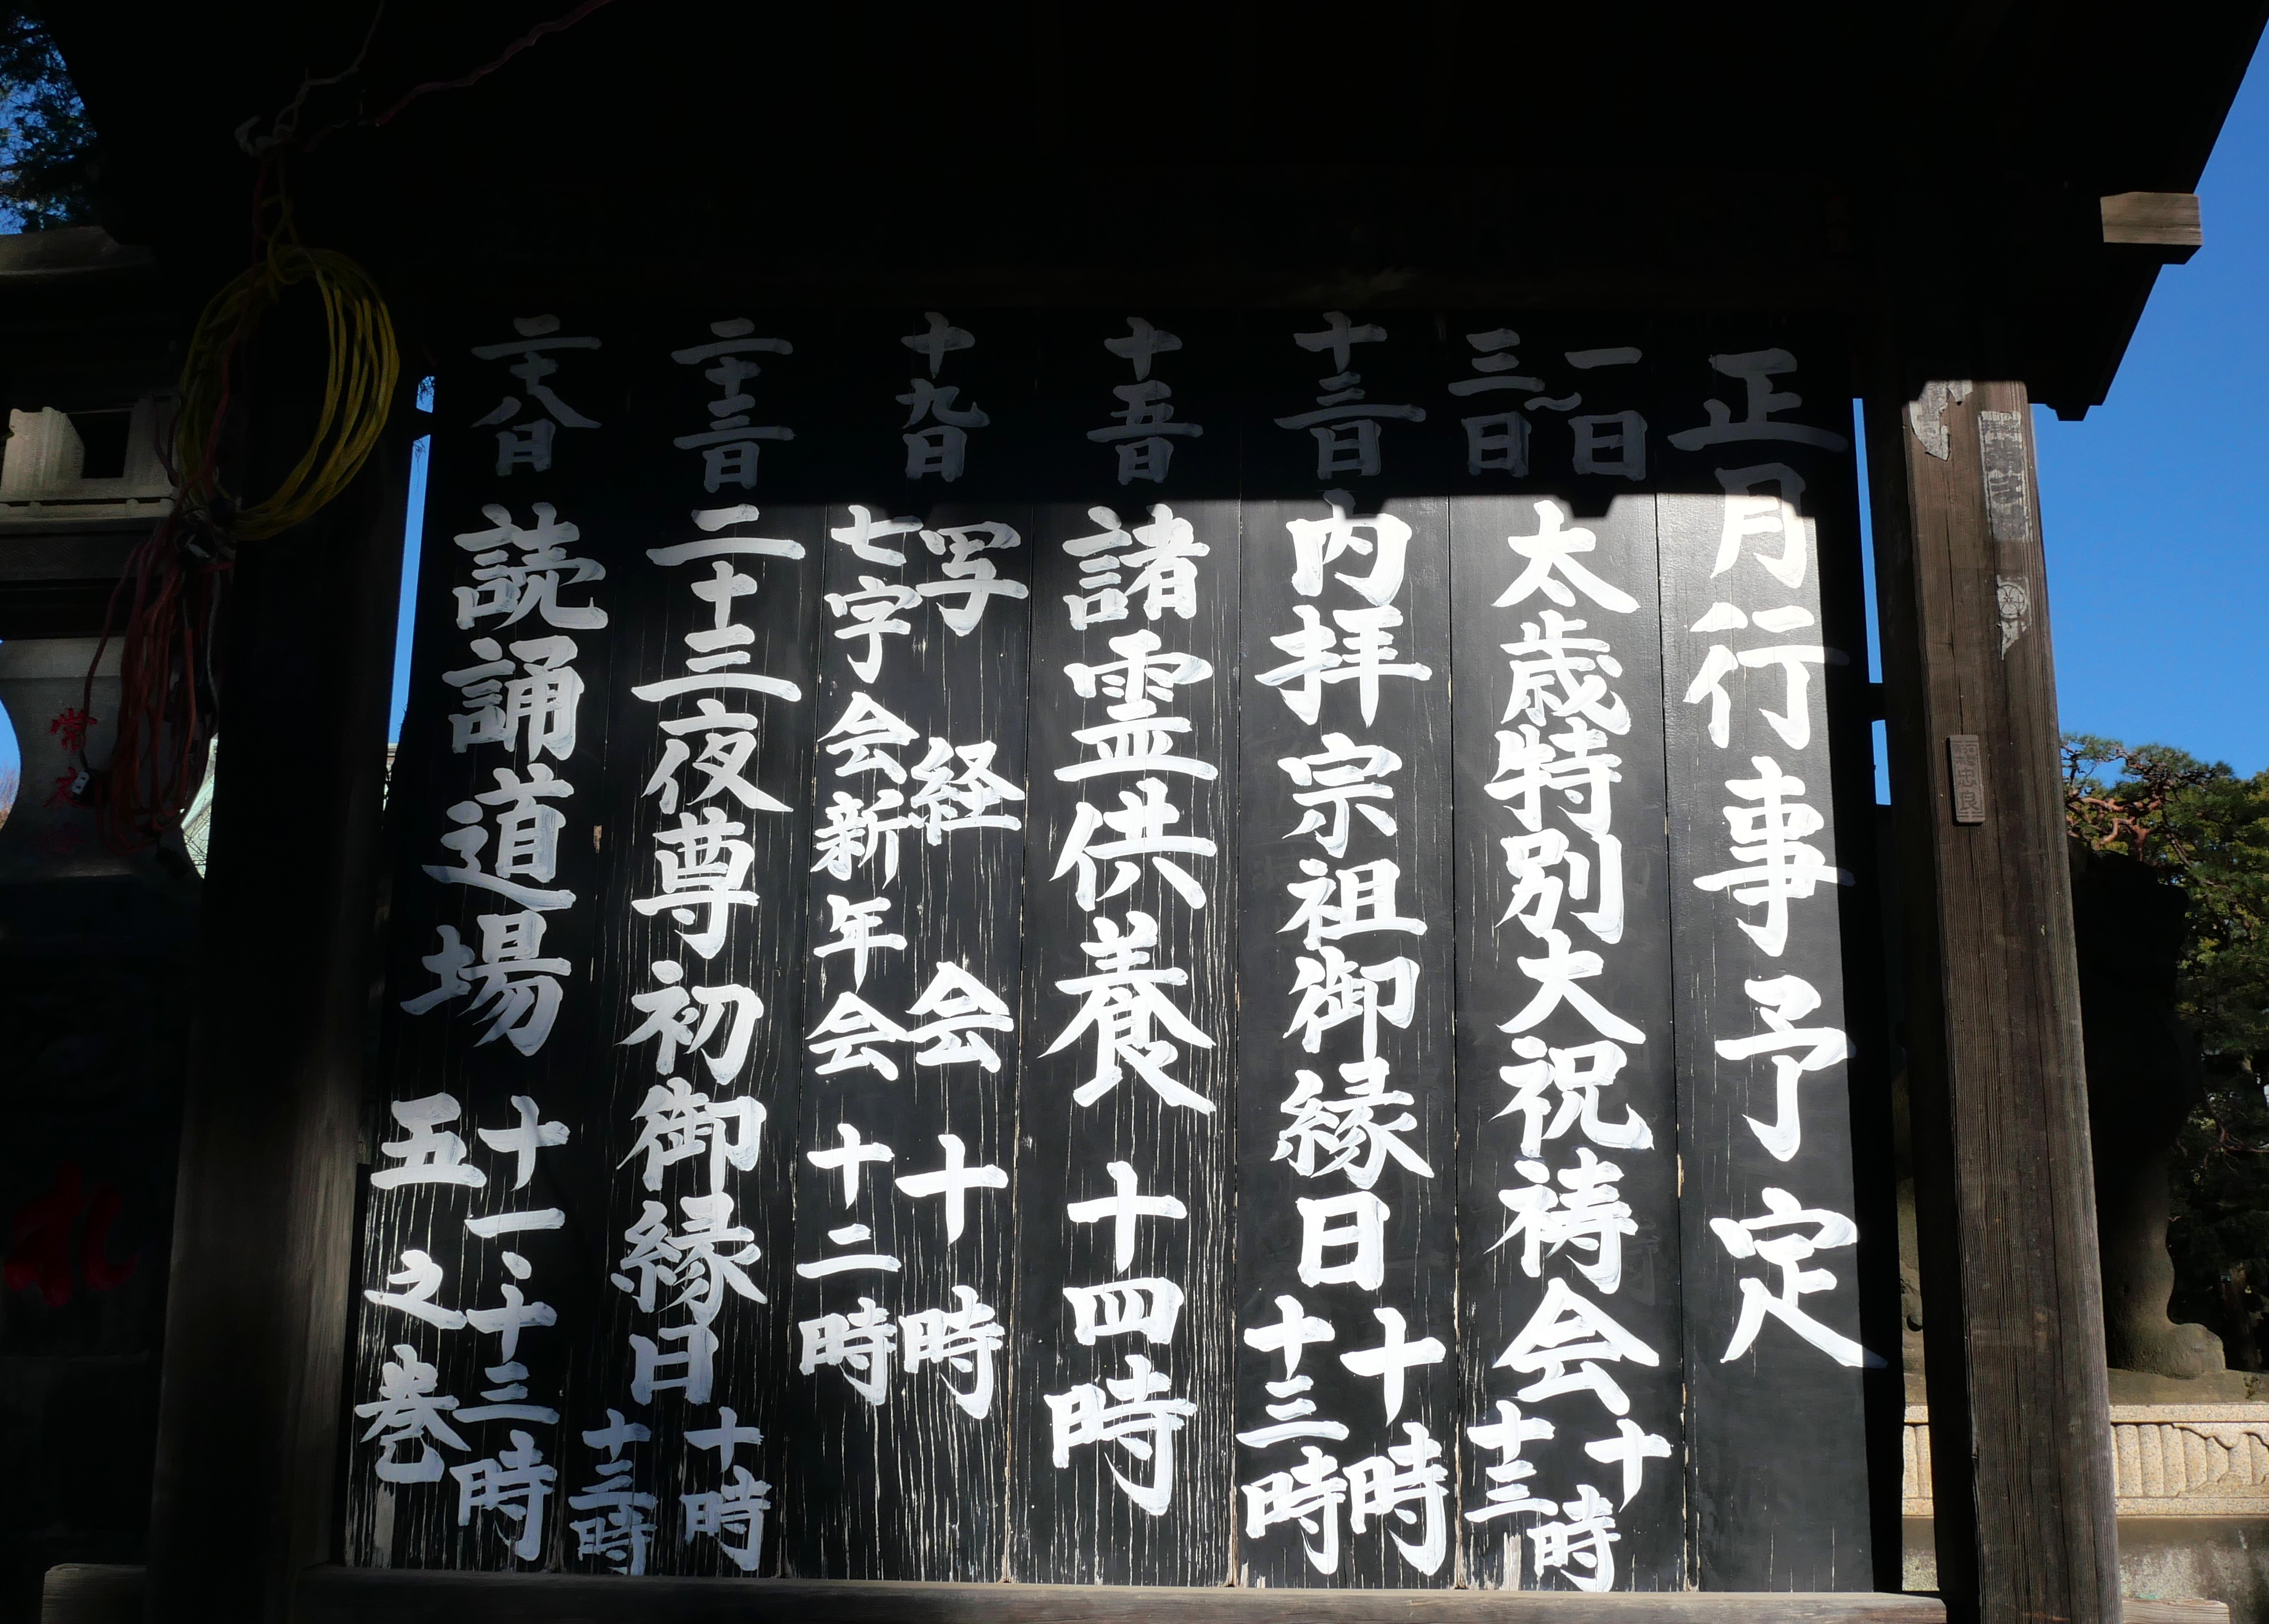 正月行事予定
一日〜三日 太歳特別大祝祷会 十、十三時
十三日 内拝宗祖御縁日 十時 十三時
十五日 諸霊供養 十四時
十九日 写経会 十時
七字会新年会 十二時
二十三日 二十三夜尊初御縁日 十時 十三時
二十八日 読誦道場 十一、十三時
五之巻